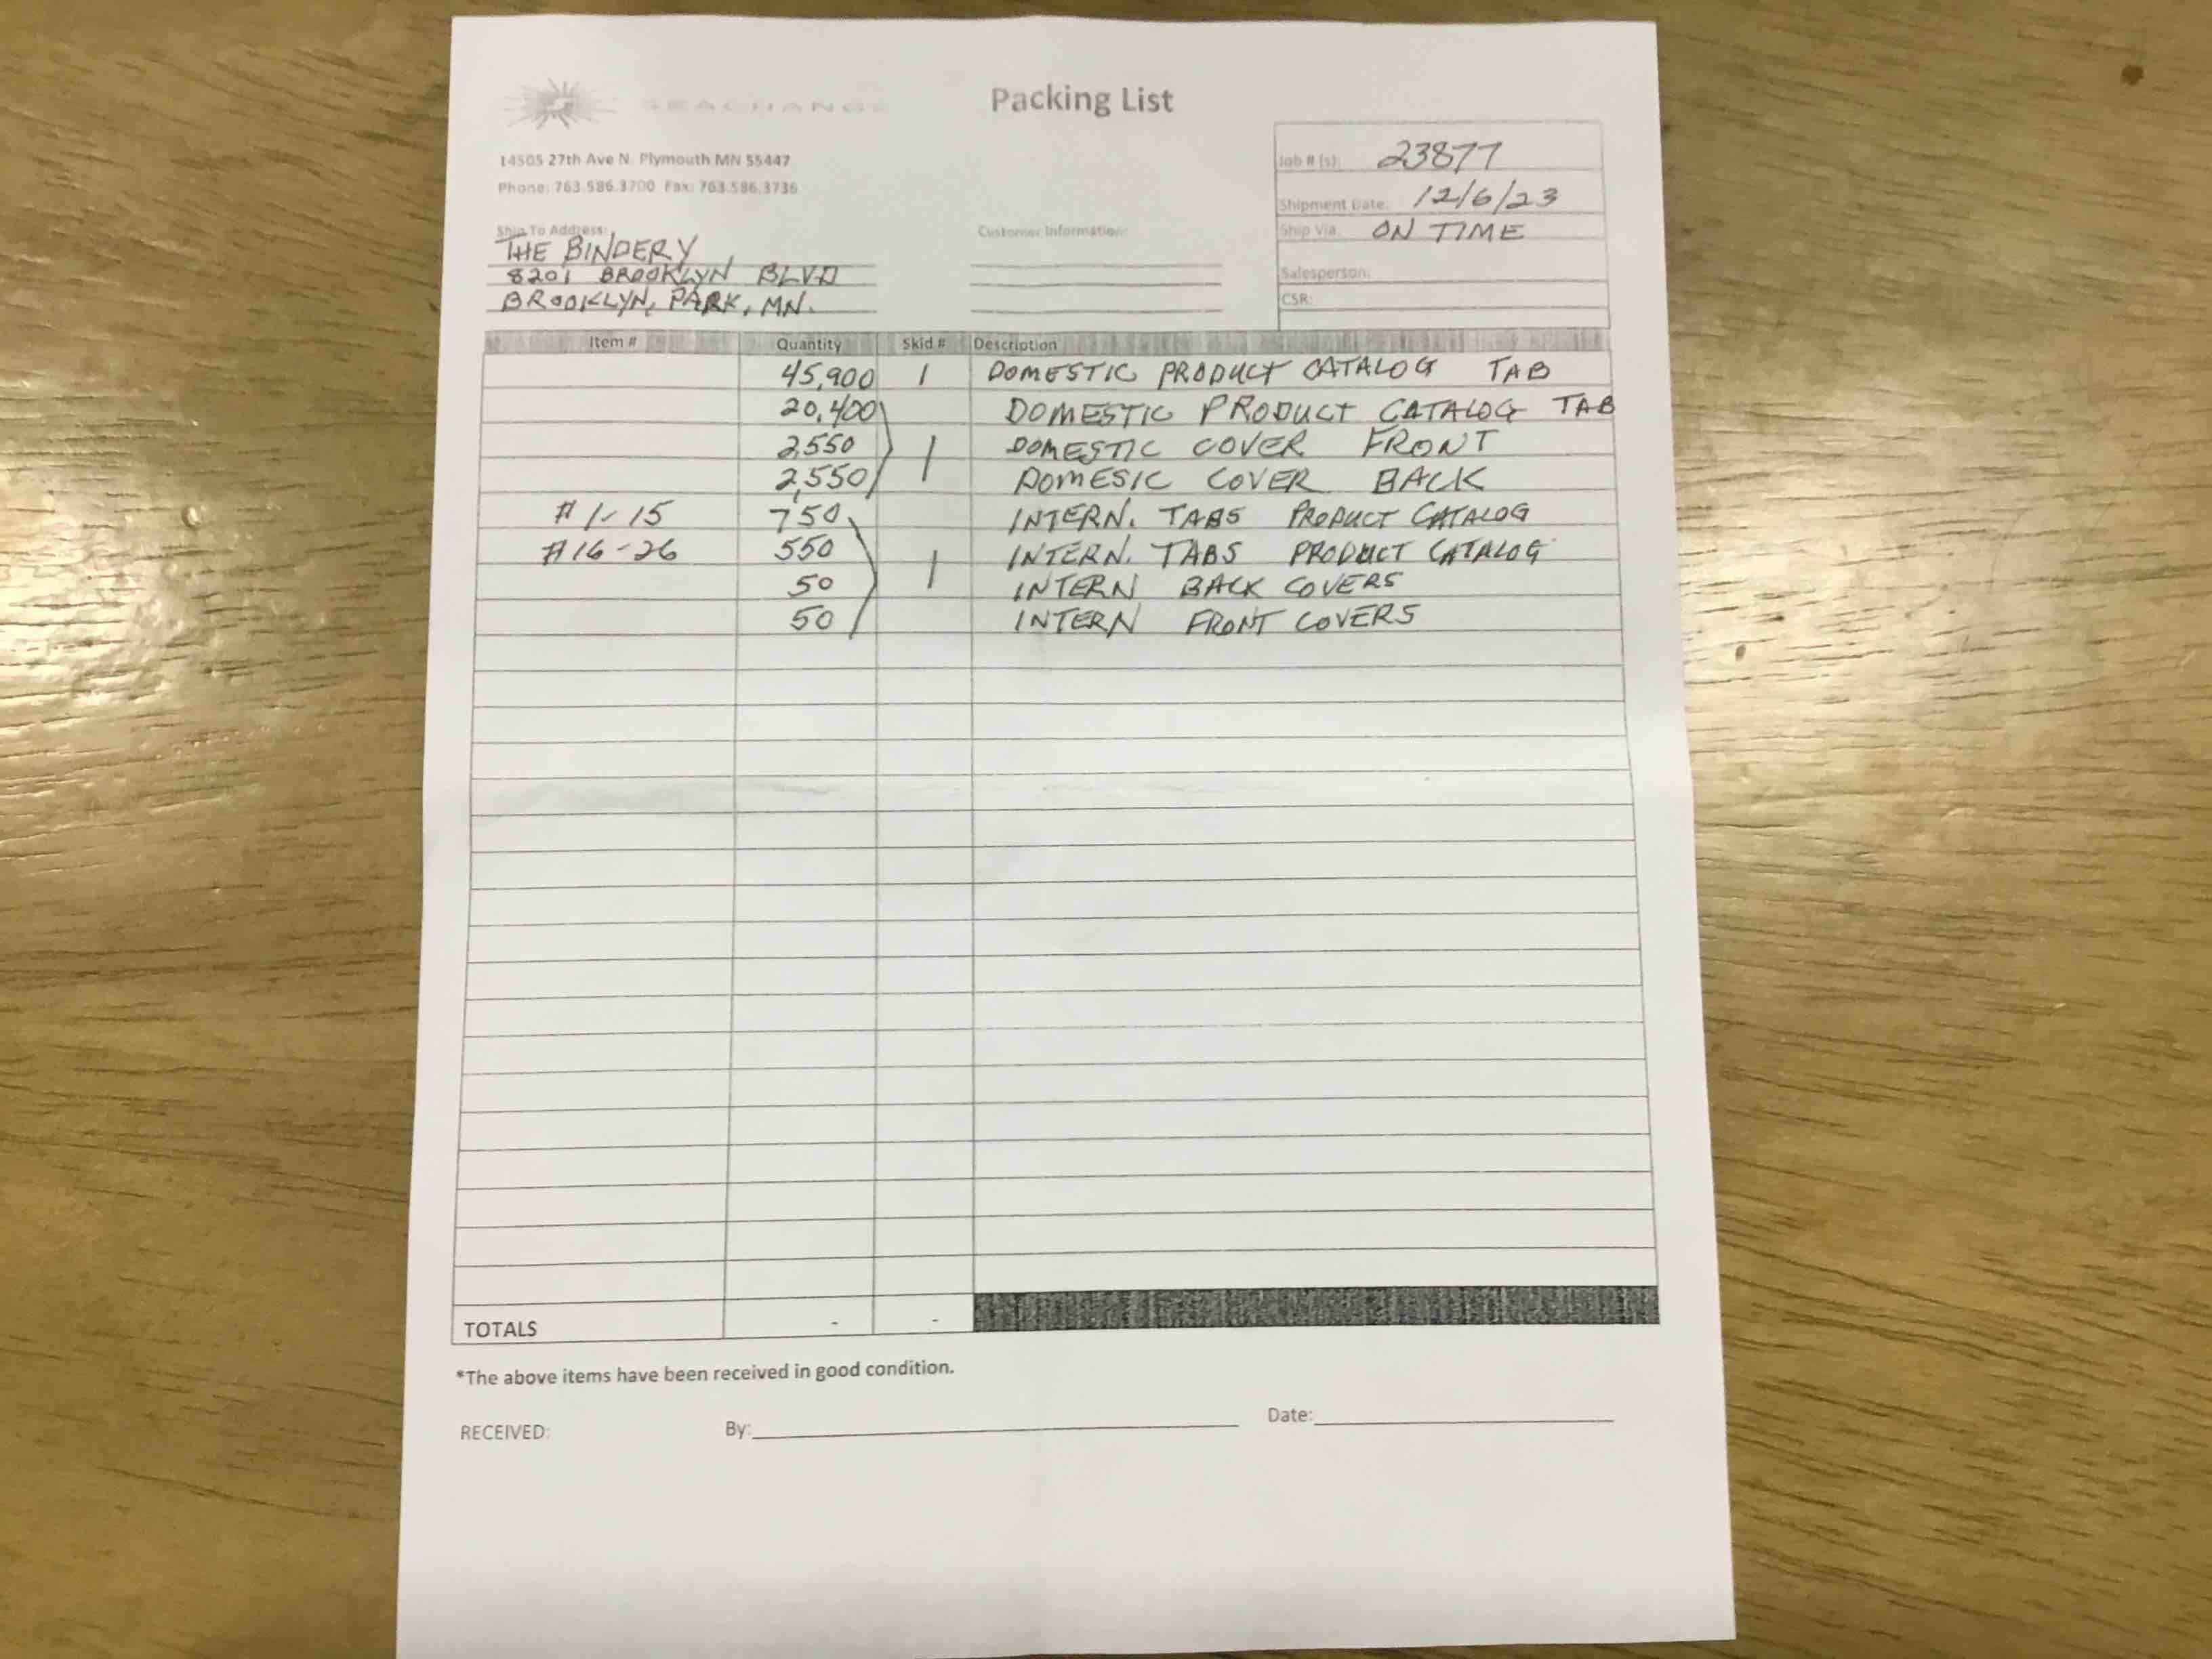 SEACHANGE
Packing List
14505 27th Ave N. Plymouth MN 55447
Phone: 763.586.3700 Fax: 763.586.3736
Job # (s): 23877
Shipment Date: 12/6/23
Ship Via: ON TIME
Salesperson:
CSR:
Ship To Address:
THE BINDERY
8201 BROOKLYN BLVD
BROOKLYN, PARK, MN.
Customer Information:
Item # Quantity Skid # Description
45,900 1 DOMESTIC PRODUCT CATALOG TAB
20,400 DOMESTIC PRODUCT CATALOG TAB
2,550 1 DOMESTIC COVER FRONT
2,550 DOMESIC COVER BACK
# 1-15 750 INTERN. TABS PRODUCT CATALOG
#16-26 550 1 INTERN. TABS PRODUCT CATALOG
50 INTERN BACK COVERS
50 INTERN FRONT COVERS
TOTALS - -
*The above items have been received in good condition.
RECEIVED: By: Date: